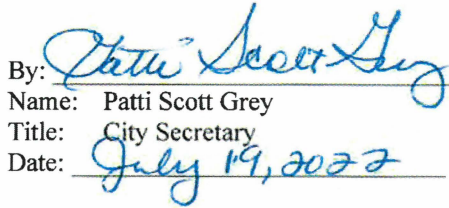 By: Patti Scott Grey
Name: Patti Scott Grey
Title: City Secretary
Date: July 19, 2022